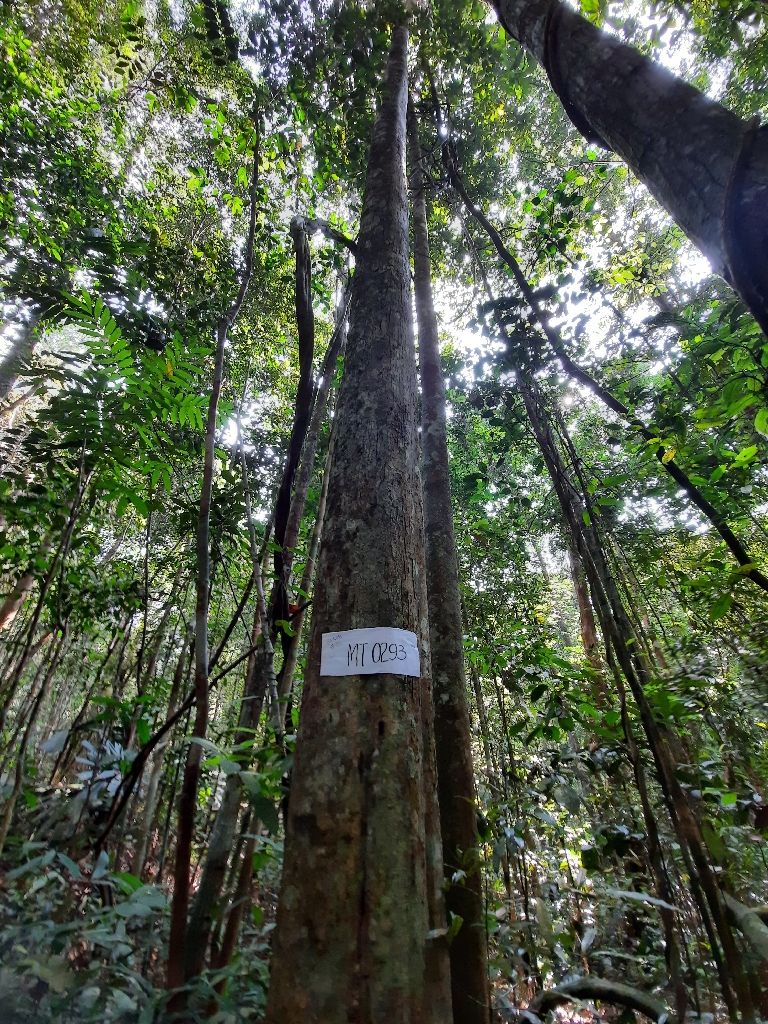 MT 0293